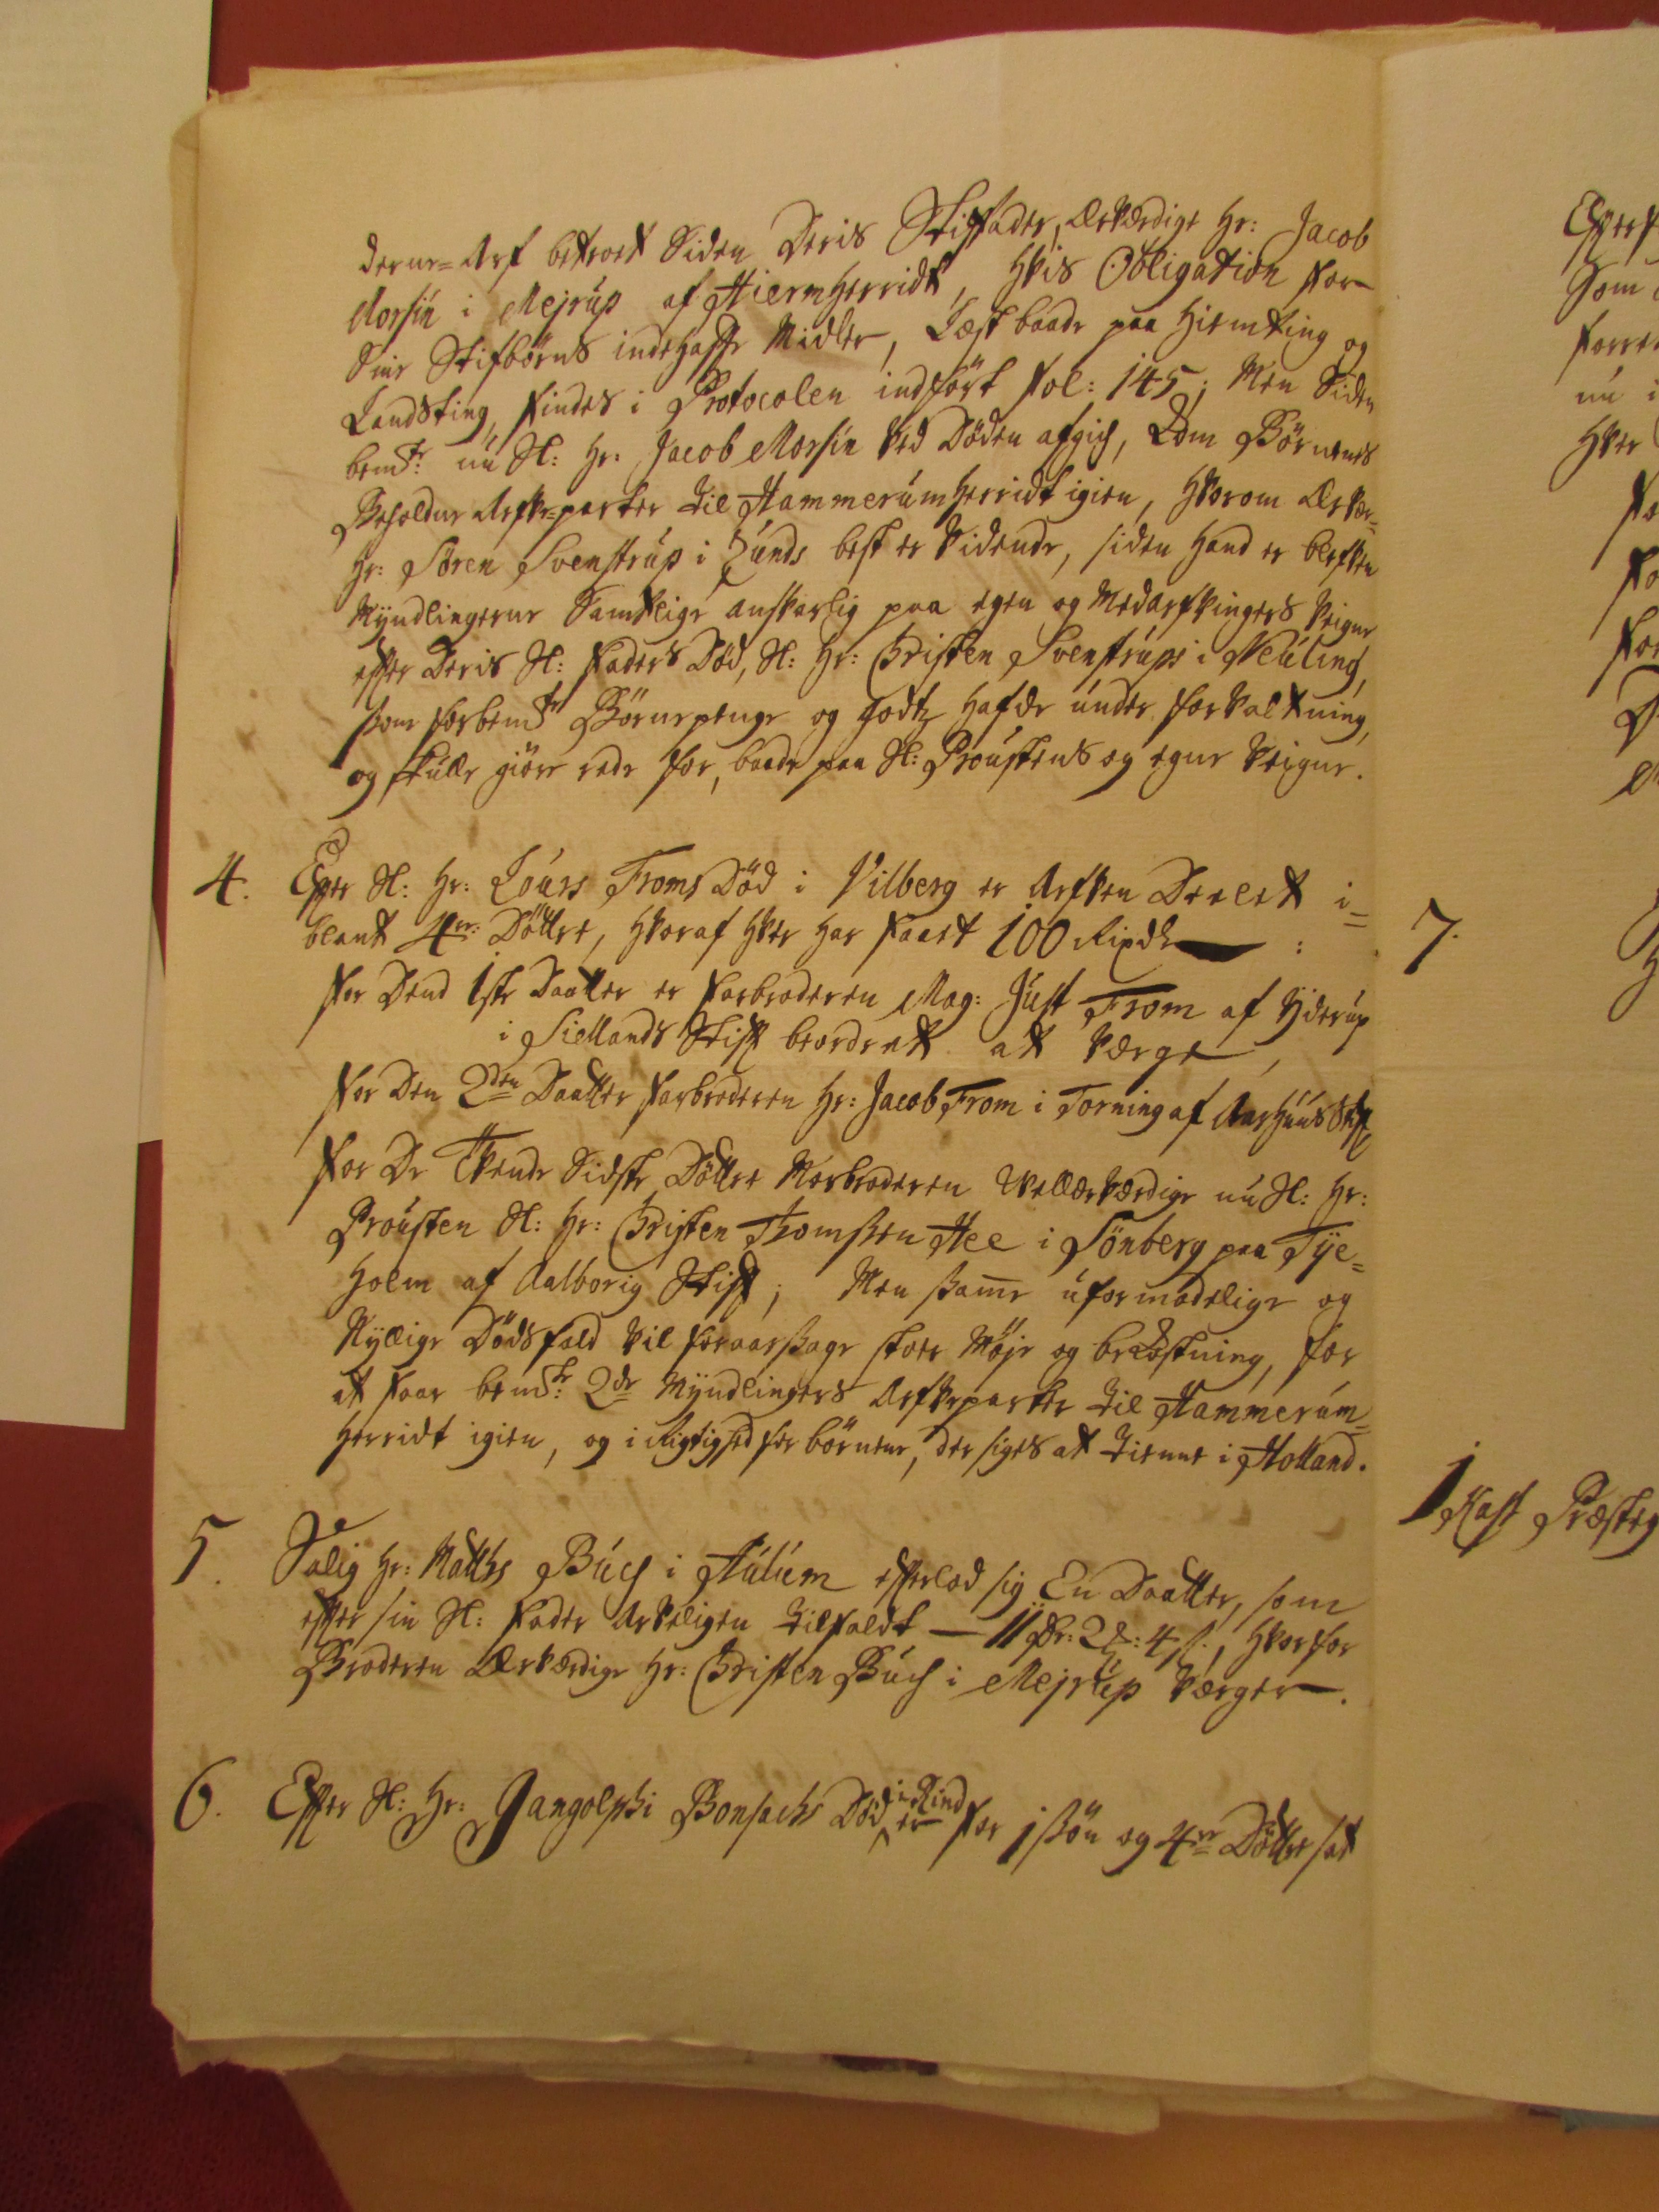 derne=Arf betroet Siden Deris Stiffader, Ærværdige Hr: Jacob
Morsin i Mejrup af Hiermherridt, hvis Obligation for
Sine Stifbörns indehaffde Midler, Læst baade paa hiemting og
Landsting, findes i Protocolen indfört fol: 145; Men Siden
bemte: nu Sl: Hr: Jacob Morsin ved Döden afgich, Kom Börnenes
Beholdne Arfve=parter til Hammerumherridt igien, hvorom Ærvær=
Hr: Sören Svenstrup i Sunds best er vidende, siden hand er blefven
Myndlingerne Samtlige ansvarlig paa egen og Medarfvingers veigne
efter Deris Sl: Faders Död, Sl: Hr: Christen Svenstrups i Neuling,
som forbemte Börnepenge og godtz hafde under forvaltning,
og skulle giöre rede for, baade paa Sl: Proustens og egne veigne.
4. Efter Sl: Hr: Lours Froms Död i Vilberg er Arfven Deelet i=
blant 4re: Döttre, hvoraf hver har faaet 100 Rixdr :
for Dend 1ste Daatter er farbroderen Mag: Just From af Hiderup
i Siellands Stift beordret at værge,
for Den 2den Daatter farbroderen Hr: Jacob From i Torning af Aarhuus Stift
for De Tvende Sidste Döttre Morbroderen Velærværdige nu Sl: Hr:
Prousten Sl: Hr: Christen Thomssen Hee i Sönberg paa Tÿe=
holm af Aalborig Stift; Men samme uformodelige og
Nÿlige Dödsfald vil foraarsage stoer Möje og bekostning, for
at faae bemte: 2de Myndlingers Arfveparter til Hammerum=
herridt igien, og i Rigtighed for börnene, der siges at tienne i Holland.
5. Salig Hr: Matths Buch i Aulum efterlod sig En Daatter, som
efter sin Sl: Fader Arveligen tilfaldt — 11 dr: 2 : 4 s:, hvorfor
Broderen Ærværdige Hr: Christen Buch i Mejrup værger.
6. Efter Sl: Hr: Gangolphi Bonsachs Död i Rind er for 1 sön og 4re Döttre sat
Efter
Som
forre
nu i
hver
fo
fo
for
D
7.
1 Kast Præsteg